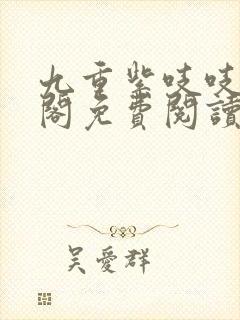 九重紫吱吱
閣免費閱讀
吴愛群